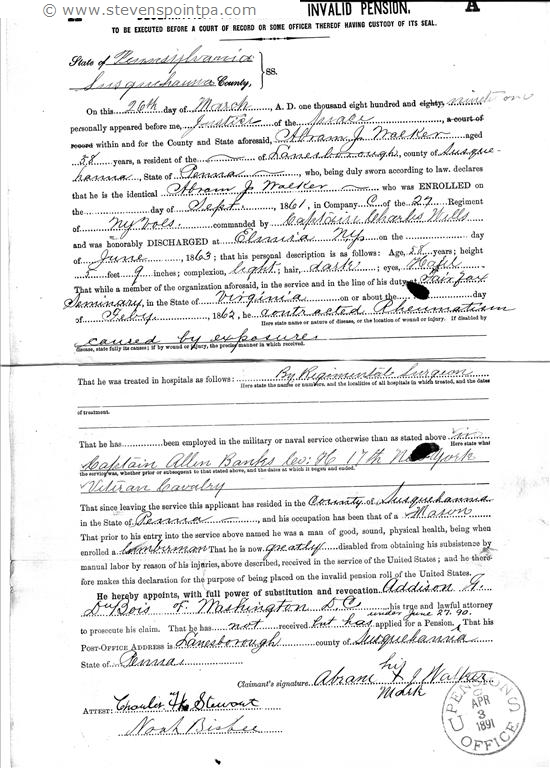 © www.stevenspointpa.com
INVALID PENSION. A
TO BE EXECUTED BEFORE A COURT OF RECORD OR SOME OFFICER THEREOF HAVING CUSTODY OF ITS SEAL.
State of Pennsylvania
Susquehanna County, } SS.
On this 26th day of March, A. D. one thousand eight hundred and eighty, ninety one
personally appeared before me, Justice of the peace, a court of
record within and for the County and State aforesaid, Abram J. Walker aged
58 years, a resident of the of Lanesborough, county of Susque-
hanna, State of Penna who, being duly sworn according to law. declares
that he is the identical Abram J Walker who was ENROLLED on
the day of Sept, 1861, in Company C of the 27 Regiment
of NY Vols. commanded by Captain Charles Wells
and was honorably DISCHARGED at Elmira NY on the day
of June, 1863; that his personal description is as follows: Age, 58 years; height
5 feet 9 inches; complexion, light; hair, dark; eyes, Hazel
That while a member of the organization aforesaid, in the service and in the line of his duty at Fairfax
Seminary, in the State of Virginia on or about the day
of Feby, 1862, he contracted Rheumatism
Here state name or nature of disease, or the location of wound or injury. If disabled by
caused by exposure.
disease, state fully its causes; if by wound or injury, the precise manner in which received.
That he was treated in hospitals as follows: By Regimental Surgeon
Here state the names or numbers, and the localities of all hospitals in which treated, and the dates
of treatment.
That he has been employed in the military or naval service otherwise than as stated above in
Here state what
Captain Allen Banks Co: H 17th New York
the service was, whether prior or subsequent to that stated above, and the dates at which it began and ended.
Vetiran Cavalry
That since leaving the service this applicant has resided in the County of Susquehannia
in the State of Penna, and his occupation has been that of a Mason
That prior to his entry into the service above named he was a man of good, sound, physical health, being when
enrolled a Lumberman That he is now greatly disabled from obtaining his subsistence by
manual labor by reason of his injuries, above described, received in the service of the United States; and he there-
fore makes this declaration for the purpose of being placed on the invalid pension roll of the United States.
He hereby appoints, with full power of substitution and revocation Addison G.
DuBois of Washington D.C. his true and lawful attorney
under June 27. 90.
to prosecute his claim. That he has not received but has applied for a Pension. That his
POST-OFFICE ADDRESS is Lanesborough county of Susquehanna
State of Penna
his
Claimant's signature. Abram X J Walker
Mark
ATTEST: Charles H Stewart
Noah Bisbee
U.S. PENSION OFFICE
APR
3
1891